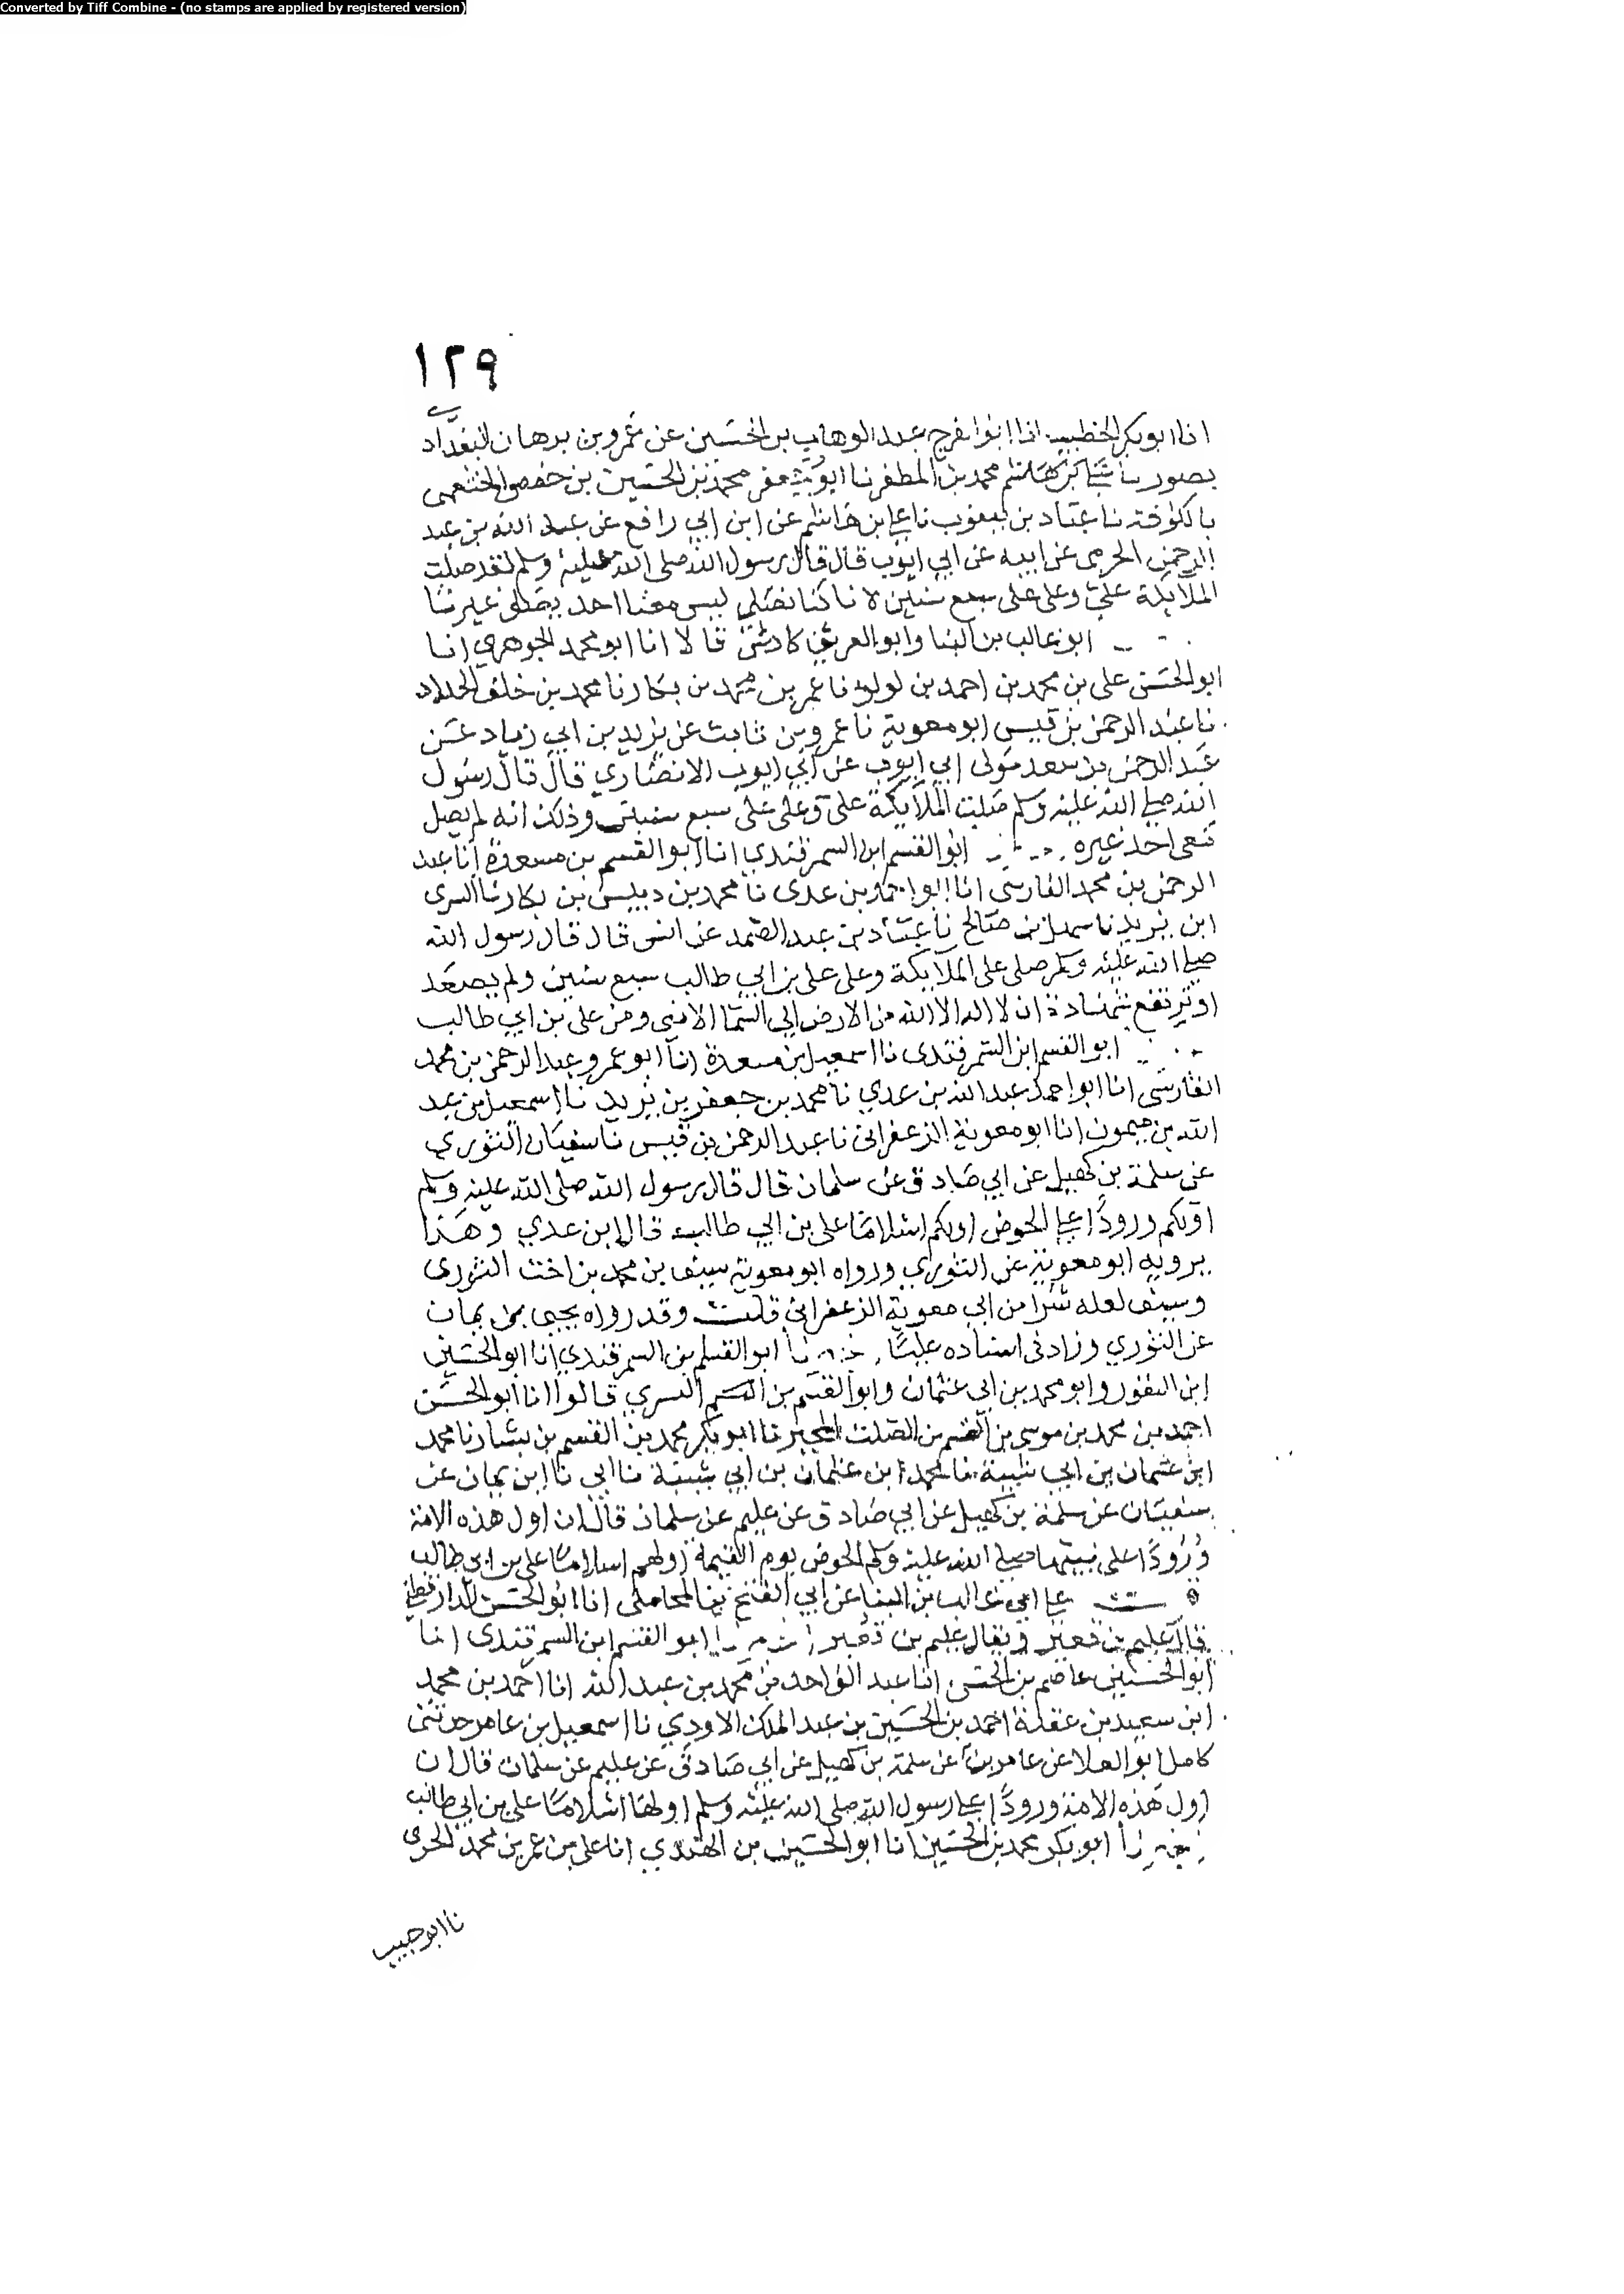 Converted by Tiff Combine - (no stamps are applied by registered version)
١٢٩
انا ابو بكر الخطيب انا ابو الفرج عبد الوهاب بن الحسين عن عمرو بن برهان البغدادي
بصور نا محمد بن المظفر نا ابو جعفر محمد بن الحسين بن حفص الخثعمي
بالكوفة نا عباد بن يعقوب نا علي بن هاشم عن ابن ابي رافع عن عبد الله بن عبد
الرحمن الحرمي عن ابيه عن ابي ايوب قال قال رسول الله صلى الله عليه وسلم لقد صلت
الملائكة علي وعلى علي سبع سنين لانا كنا نصلي ليس معنا احد يصلي غيرنا
ابو غالب بن البنا وابو العز بن كادش قالا انا ابو محمد الجوهري انا
ابو الحسن علي بن محمد بن احمد بن لولو نا عمر بن محمد بن بكار نا محمد بن خلف الحداد
نا عبد الرحمن بن قيس ابو معوية نا عمرو بن ثابت عن يزيد بن ابي زياد عن
عبد الرحمن بن سعد مولى ابي ايوب عن ابي ايوب الانصاري قال قال رسول
الله صلى الله عليه وسلم صلت الملائكة علي وعلى علي سبع سنين وذلك انه لم يصل
معي احد غيره ابو القسم ابن السمرقندي انا ابو القسم بن مسعدة انا عبد
الرحمن بن محمد الفارسي انا ابو احمد بن عدي نا محمد بن دبيس بن بكار نا السري
ابن يزيد نا سهل بن صالح نا عباد بن عبد الصمد عن انس قال قال رسول الله
صلى الله عليه وسلم صلى علي الملائكة وعلى علي بن ابي طالب سبع سنين ولم يصعد
او ترتفع شهادة ان لا اله الا الله من الارض الى السما الا مني ومن علي بن ابي طالب
ابو القسم ابن السمرقندي نا اسمعيل بن مسعدة انا ابو عمرو عبد الرحمن بن محمد
الفارسي انا ابو احمد عبد الله بن عدي نا محمد بن جعفر بن يزيد نا اسمعيل بن عبد
الله بن ميمون انا ابو معوية الزعفراني نا عبد الرحمن بن قيس نا سفيان الثوري
عن سلمة بن كهيل عن ابي صادق عن سلمان قال قال رسول الله صلى الله عليه وسلم
اولكم ورودًا علي الحوض اولكم اسلاما علي بن ابي طالب قال ابن عدي وهذا
يرويه ابو معوية عن الثوري ورواه ابو معوية سيف بن محمد بن اخت الثوري
وسيف لعله شرا من ابي معوية الزعفراني قلت وقد رواه يحيى بن يمان
عن الثوري وزاد في اسناده عليما ابو القسم بن السمرقندي انا ابو الحسين
ابن النقور وابو محمد بن ابي عثمان وابو القسم بن البسري قالوا انا ابو الحسن
احمد بن محمد بن موسى بن القسم بن الصلت المجبر نا ابو بكر محمد بن القسم بن بشار نا محمد
ابن عثمان بن ابي شيبة نا محمد ابن عثمان بن ابي شيبة نا ابي نا ابن يمان عن
سفيان عن سلمة بن كهيل عن ابي صادق عن عليم عن سلمان قال ان اول هذه الامة
ورودًا على نبيها صلى الله عليه وسلم الحوض يوم القيمة اولهم اسلاما علي بن ابي طالب
علي ابي غالب بن البنا عن ابي الفتح بن المحاملي انا ابو الحسن الدارقطني
قال عليم بن قعير ويقال عليم بن قعير ابو القسم ابن السمرقندي انا
ابو الحسين عاصم بن الحسن انا عبد الواحد بن محمد بن عبد الله انا احمد بن محمد
ابن سعيد بن عقدة احمد بن الحسين بن عبد الملك الاودي نا اسمعيل بن عامر حدثني
كامل ابو العلا عن عامر بن عن سلمة بن كهيل عن ابي صادق عن عليم عن سلمان قال ان
اول هذه الامة ورودًا علي رسول الله صلى الله عليه وسلم اولها اسلاما علي بن ابي طالب
ابو بكر محمد بن الحسين انا ابو الحسين بن المهتدي انا علي بن عمر بن محمد الحربي
نا ابو حبيب